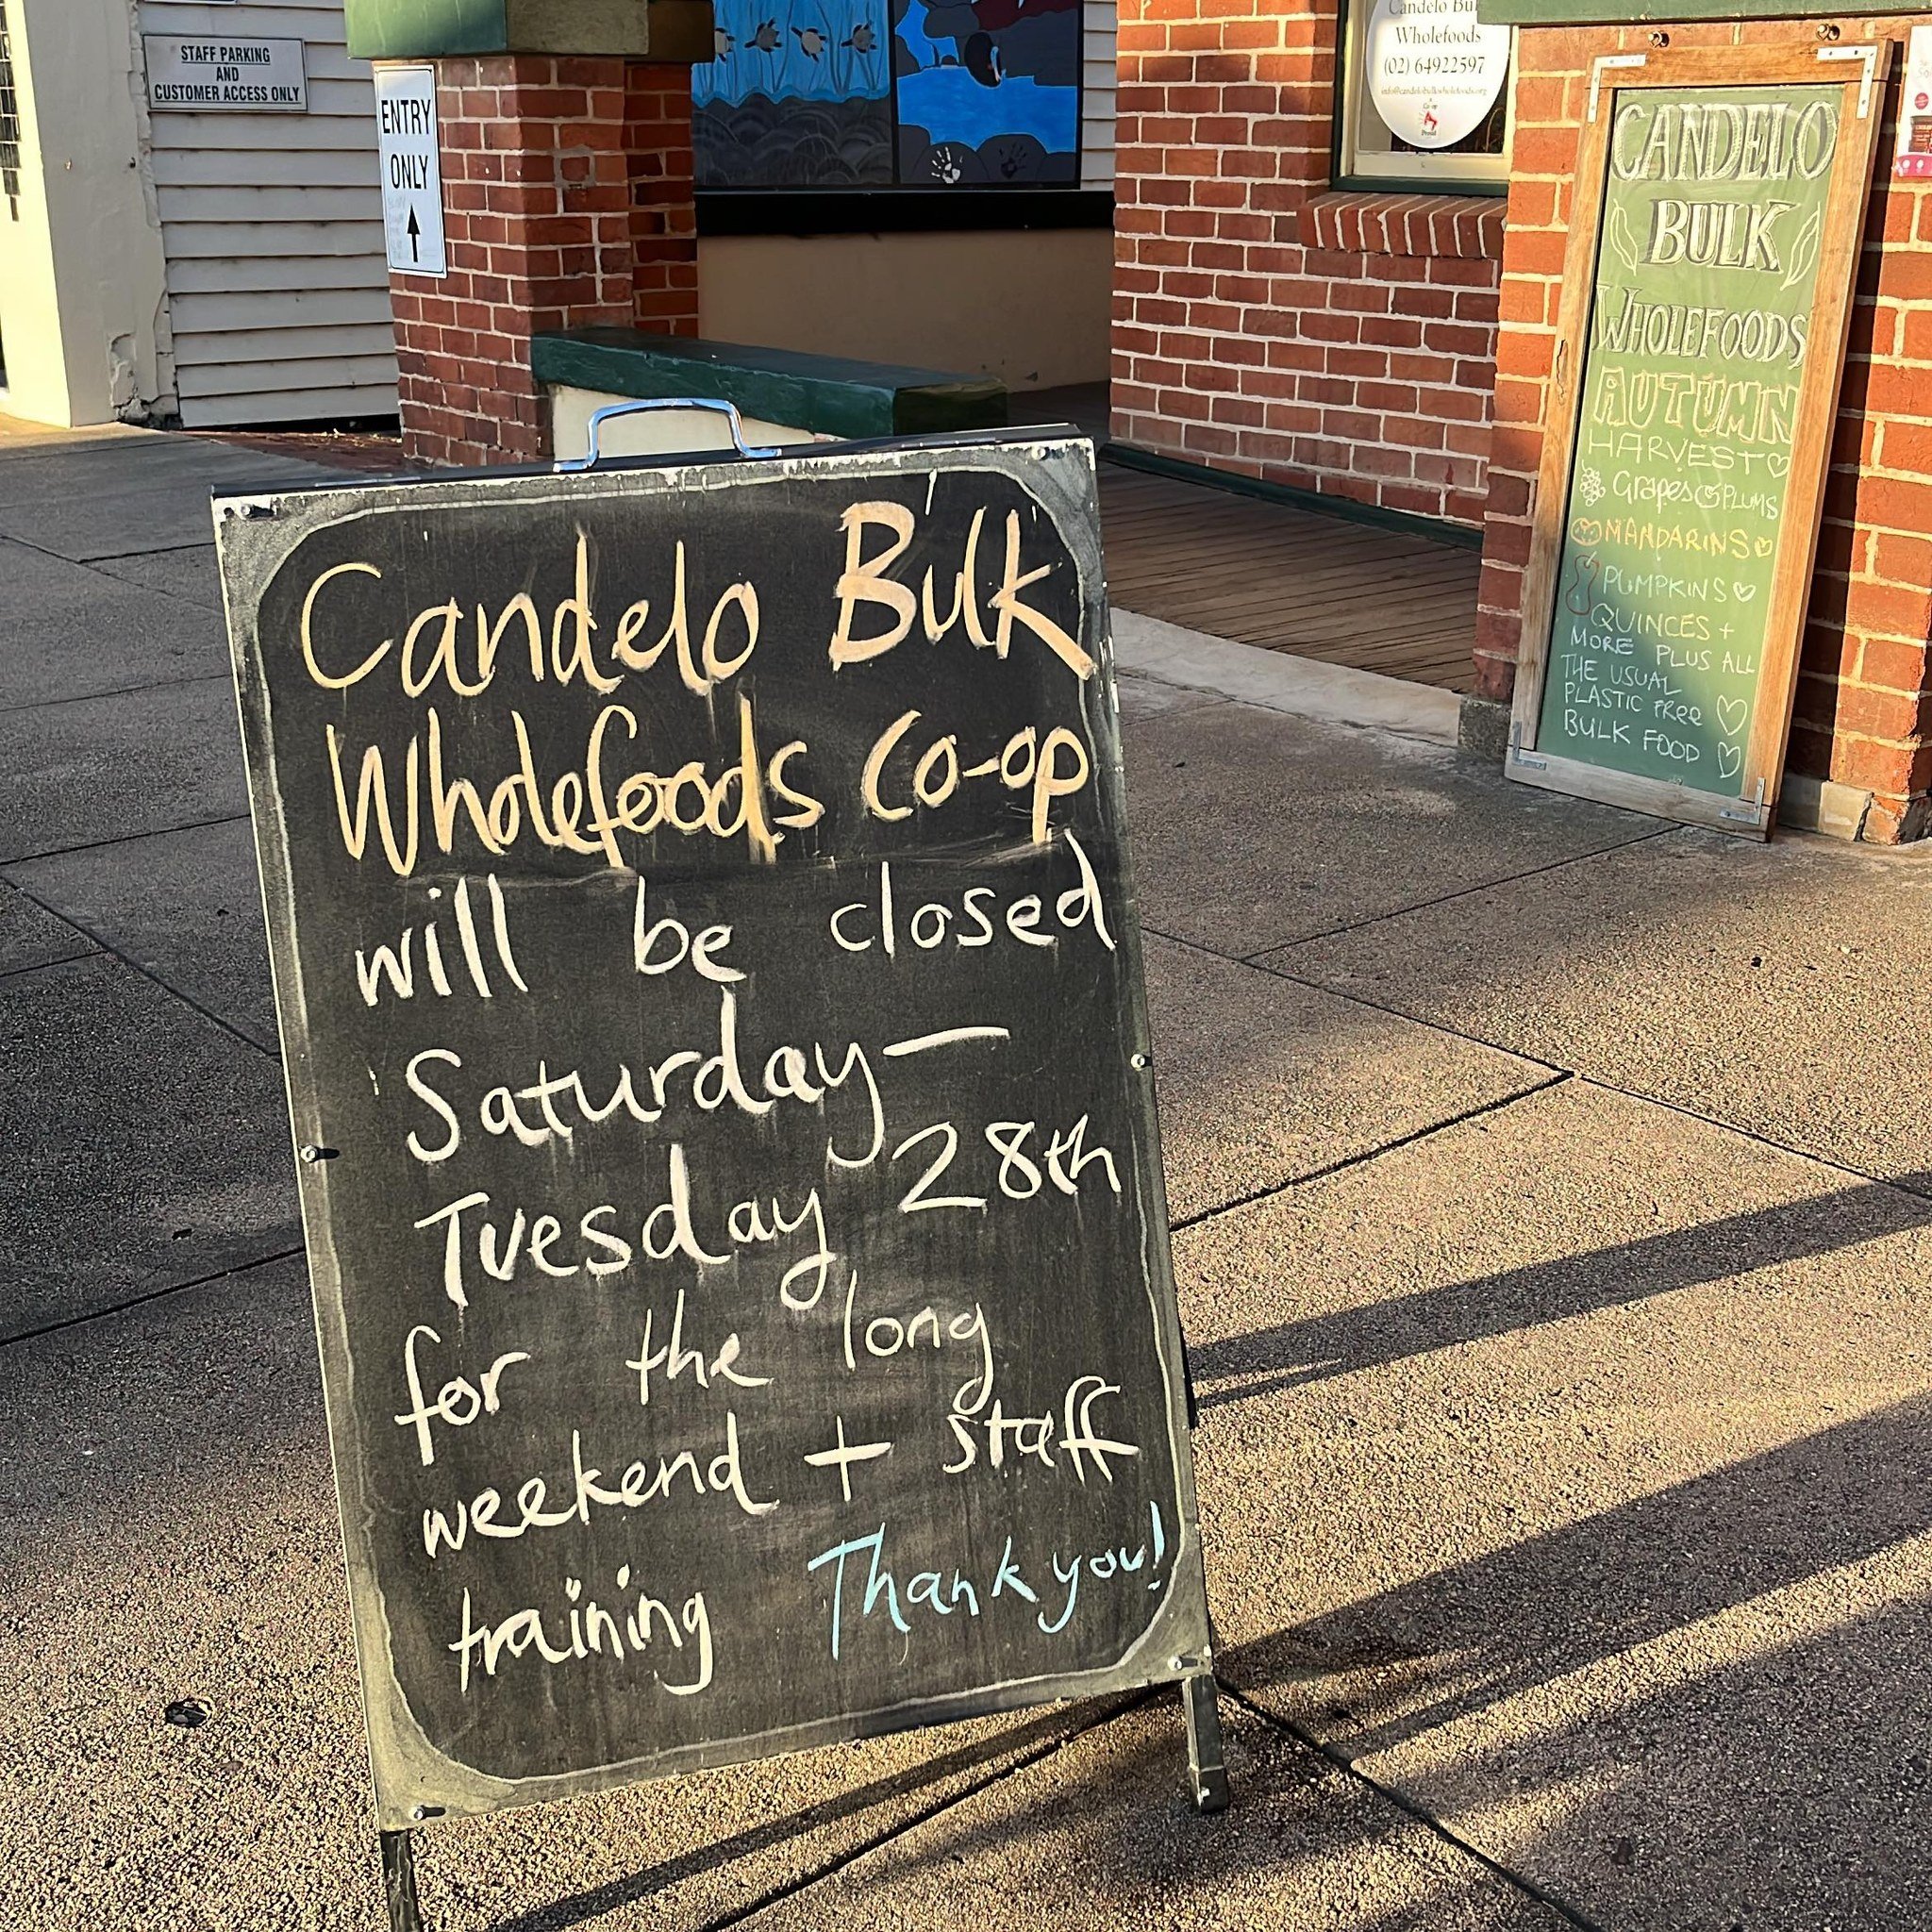 STAFF PARKING
AND
CUSTOMER ACCESS ONLY
ENTRY
ONLY
Candelo Bulk
Wholefoods Co-op
will be closed
Saturday—
Tuesday 28th
for the long
weekend + staff
training Thank you!
Candelo Bul
Wholefoods
(02) 64922597
info@candelobulkwholefoods.org
CANDELO
BULK
WHOLEFOODS
AUTUMN
HARVEST
Grapes & PLUMS
MANDARINS
PUMPKINS
QUINCES +
MORE PLUS ALL
THE USUAL
PLASTIC FREE
BULK FOOD